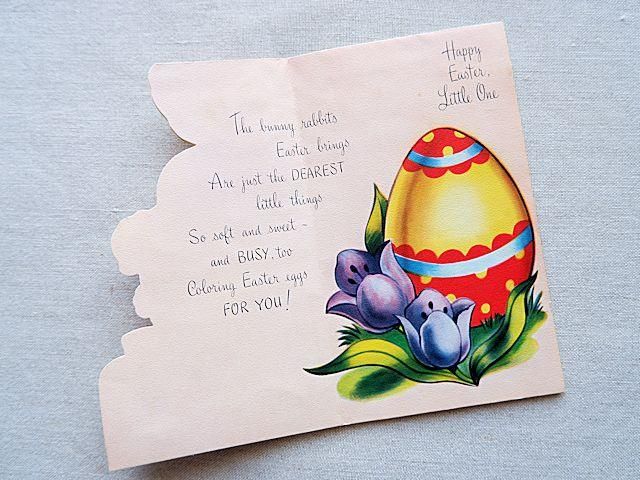 The bunny rabbits
Easter brings
Are just the DEAREST
little things
So soft and sweet -
and BUSY, too
Coloring Easter eggs
FOR YOU!
Happy
Easter,
Little One